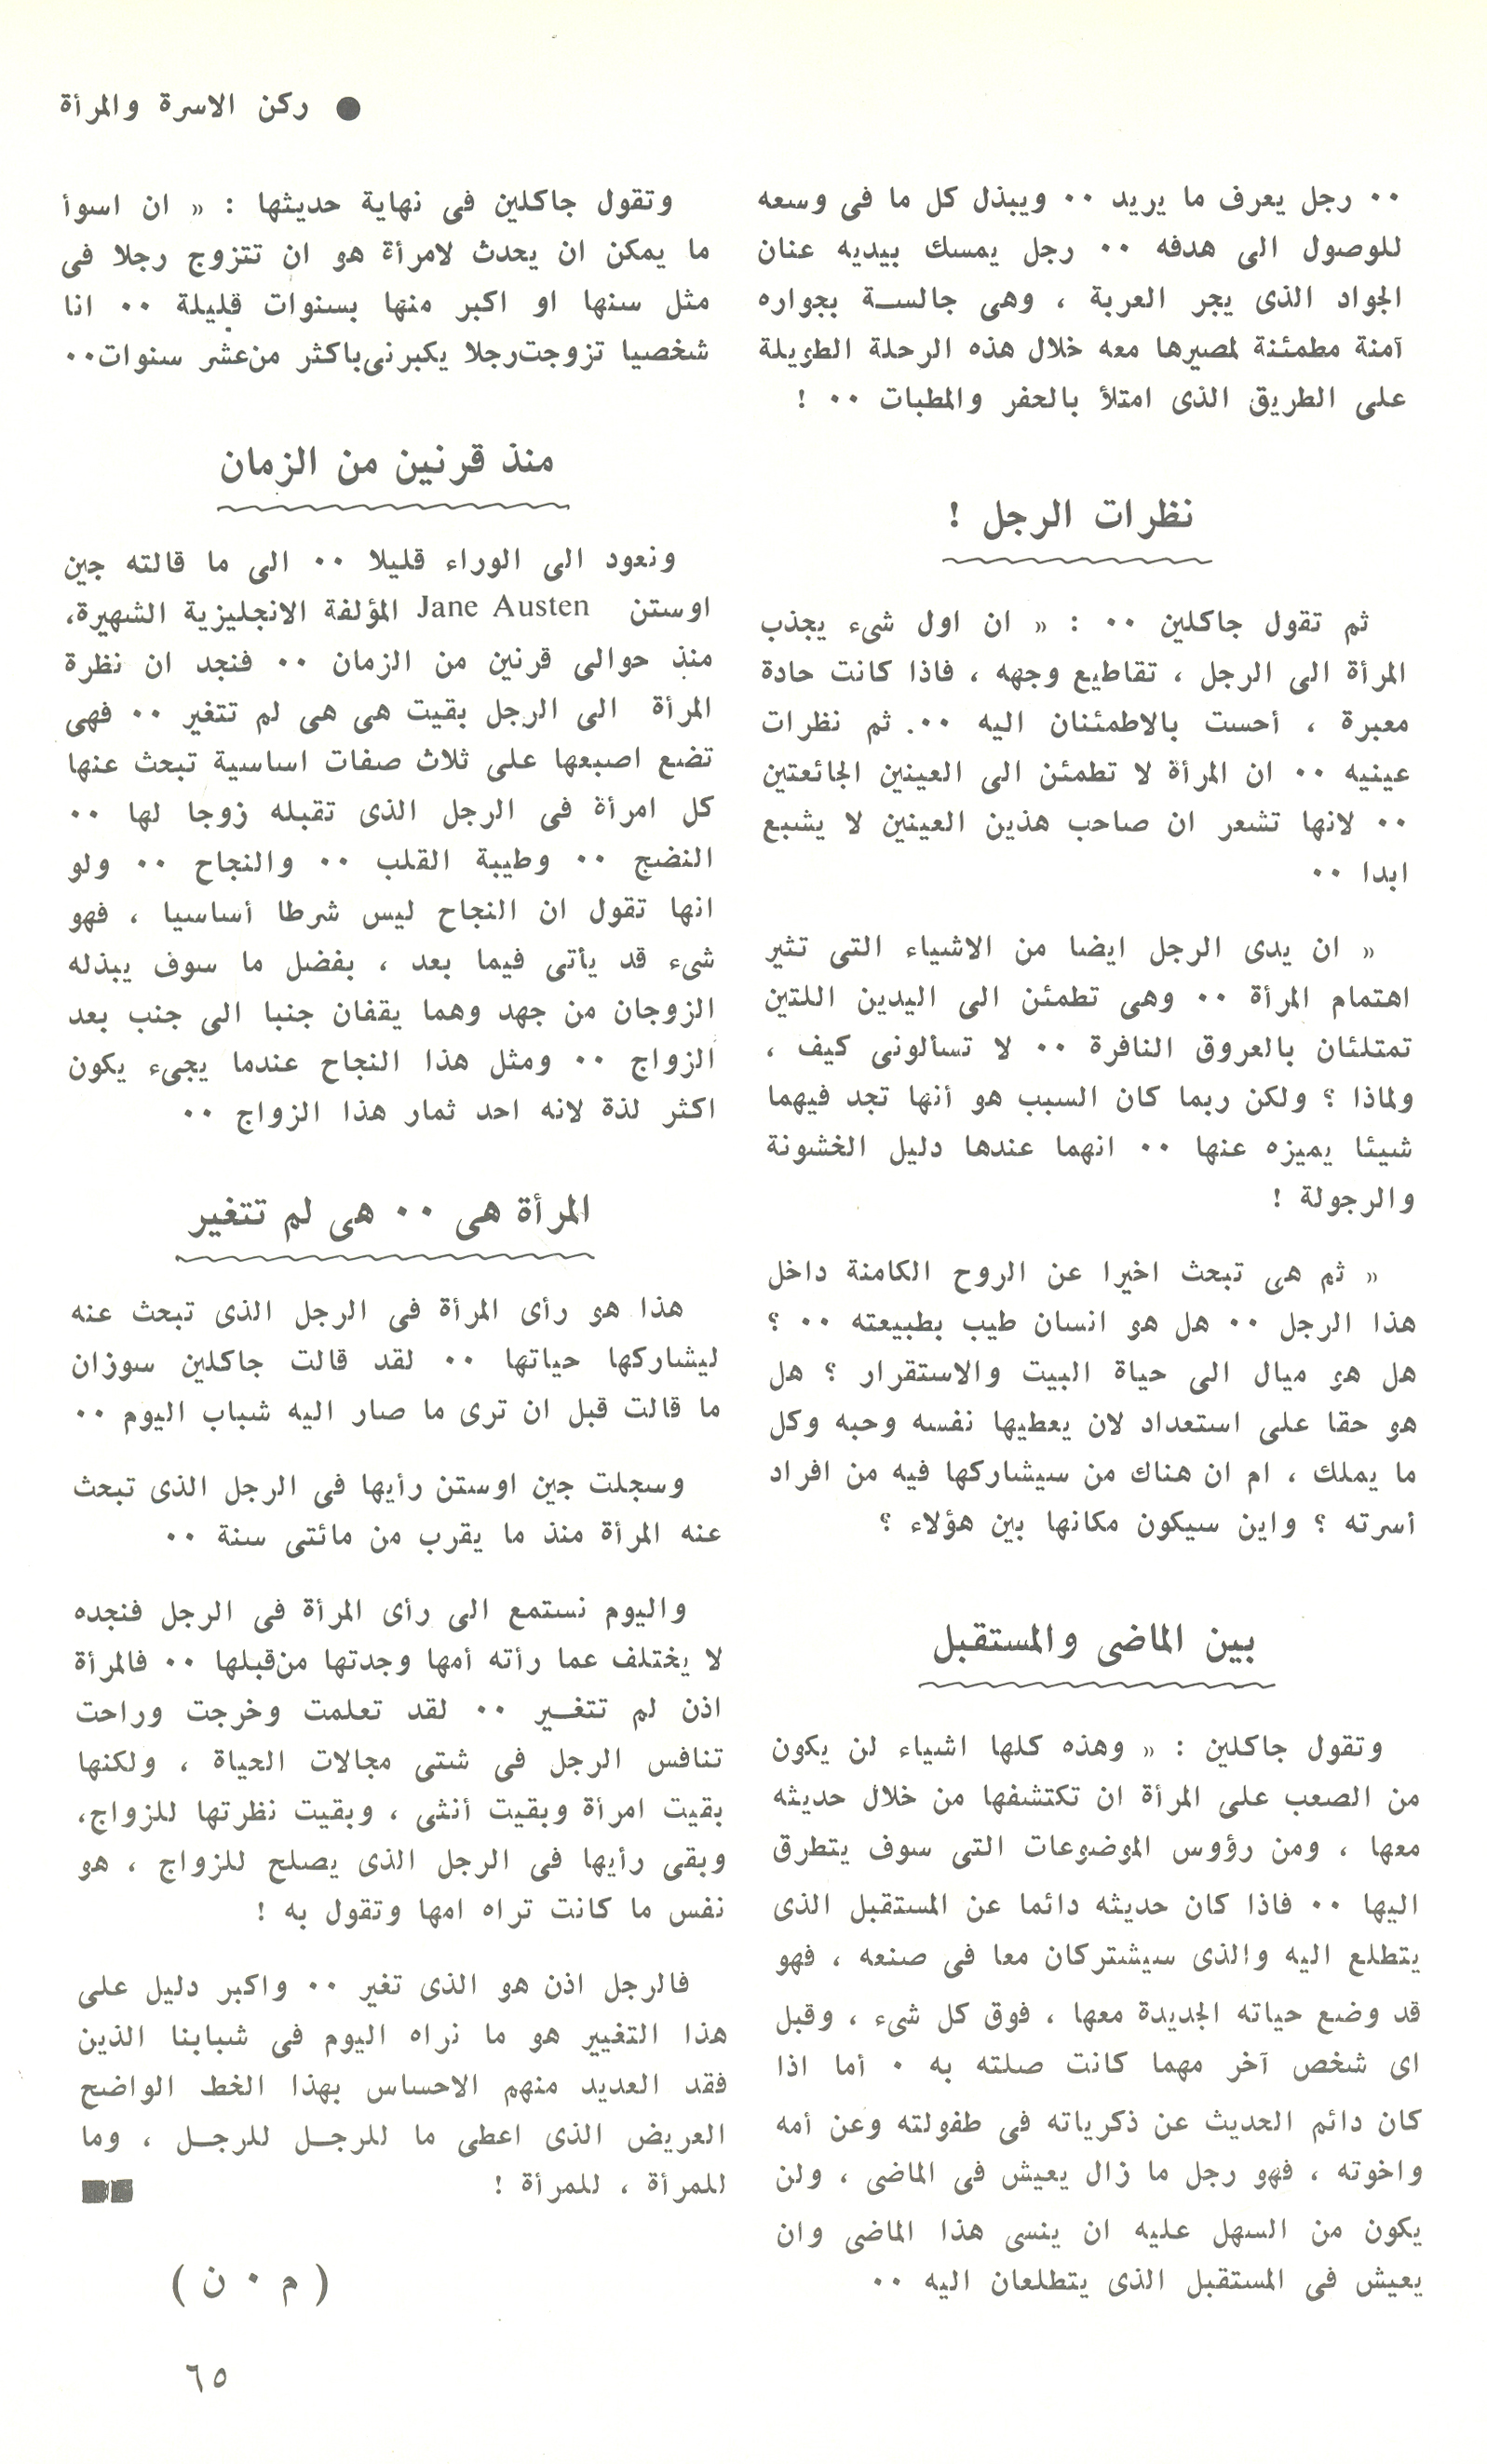 ● ركن الاسرة والمرأة
٠٠ رجل يعرف ما يريد ٠٠ ويبذل كل ما فى وسعه
للوصول الى هدفه ٠٠ رجل يمسك بيديه عنان
الجواد الذى يجر العربة ، وهى جالسة بجواره
آمنة مطمئنة لمصيرها معه خلال هذه الرحلة الطويلة
على الطريق الذى امتلأ بالحفر والمطبات ٠٠ !
نظرات الرجل !
ثم تقول جاكلين ٠٠ : « ان اول شىء يجذب
المرأة الى الرجل ، تقاطيع وجهه ، فاذا كانت حادة
معبرة ، أحست بالاطمئنان اليه ٠٠. ثم نظرات
عينيه ٠٠ ان المرأة لا تطمئن الى العينين الجائعتين
٠٠ لانها تشعر ان صاحب هذين العينين لا يشبع
ابدا ٠٠
« ان يدى الرجل ايضا من الاشياء التى تثير
اهتمام المرأة ٠٠ وهى تطمئن الى اليدين اللتين
تمتلئان بالعروق النافرة ٠٠ لا تسألونى كيف ،
ولماذا ؟ ولكن ربما كان السبب هو أنها تجد فيهما
شيئا يميزه عنها ٠٠ انهما عندها دليل الخشونة
والرجولة !
« ثم هى تبحث اخيرا عن الروح الكامنة داخل
هذا الرجل ٠٠ هل هو انسان طيب بطبيعته ٠٠ ؟
هل هو ميال الى حياة البيت والاستقرار ؟ هل
هو حقا على استعداد لان يعطيها نفسه وحبه وكل
ما يملك ، ام ان هناك من سيشاركها فيه من افراد
أسرته ؟ واين سيكون مكانها بين هؤلاء ؟
بين الماضى والمستقبل
وتقول جاكلين : « وهذه كلها اشياء لن يكون
من الصعب على المرأة ان تكتشفها من خلال حديثه
معها ، ومن رؤوس الموضوعات التى سوف يتطرق
اليها ٠٠ فاذا كان حديثه دائما عن المستقبل الذى
يتطلع اليه والذى سيشتركان معا فى صنعه ، فهو
قد وضع حياته الجديدة معها ، فوق كل شىء ، وقبل
اى شخص آخر مهما كانت صلته به ٠ أما اذا
كان دائم الحديث عن ذكرياته فى طفولته وعن أمه
واخوته ، فهو رجل ما زال يعيش فى الماضى ، ولن
يكون من السهل عليه ان ينسى هذا الماضى وان
يعيش فى المستقبل الذى يتطلعان اليه ٠٠
وتقول جاكلين فى نهاية حديثها : « ان اسوأ
ما يمكن ان يحدث لامرأة هو ان تتزوج رجلا فى
مثل سنها او اكبر منها بسنوات قليلة ٠٠ انا
شخصيا تزوجت رجلا يكبرنى باكثر من عشر سنوات٠٠
منذ قرنين من الزمان
ونعود الى الوراء قليلا ٠٠ الى ما قالته جين
اوستن Jane Austen المؤلفة الانجليزية الشهيرة،
منذ حوالى قرنين من الزمان ٠٠ فنجد ان نظرة
المرأة الى الرجل بقيت هى هى لم تتغير ٠٠ فهى
تضع اصبعها على ثلاث صفات اساسية تبحث عنها
كل امرأة فى الرجل الذى تقبله زوجا لها ٠٠
النضج ٠٠ وطيبة القلب ٠٠ والنجاح ٠٠ ولو
انها تقول ان النجاح ليس شرطا أساسيا ، فهو
شىء قد يأتى فيما بعد ، بفضل ما سوف يبذله
الزوجان من جهد وهما يقفان جنبا الى جنب بعد
الزواج ٠٠ ومثل هذا النجاح عندما يجىء يكون
اكثر لذة لانه احد ثمار هذا الزواج ٠٠
المرأة هى ٠٠ هى لم تتغير
هذا هو رأى المرأة فى الرجل الذى تبحث عنه
ليشاركها حياتها ٠٠ لقد قالت جاكلين سوزان
ما قالت قبل ان ترى ما صار اليه شباب اليوم ٠٠
وسجلت جين اوستن رأيها فى الرجل الذى تبحث
عنه المرأة منذ ما يقرب من مائتى سنة ٠٠
واليوم نستمع الى رأى المرأة فى الرجل فنجده
لا يختلف عما رأته أمها وجدتها من قبلها ٠٠ فالمرأة
اذن لم تتغير ٠٠ لقد تعلمت وخرجت وراحت
تنافس الرجل فى شتى مجالات الحياة ، ولكنها
بقيت امرأة وبقيت أنثى ، وبقيت نظرتها للزواج،
وبقى رأيها فى الرجل الذى يصلح للزواج ، هو
نفس ما كانت تراه امها وتقول به !
فالرجل اذن هو الذى تغير ٠٠ واكبر دليل على
هذا التغيير هو ما نراه اليوم فى شبابنا الذين
فقد العديد منهم الاحساس بهذا الخط الواضح
العريض الذى اعطى ما للرجل للرجل ، وما
للمرأة ، للمرأة !
( م ٠ ن )
٦٥